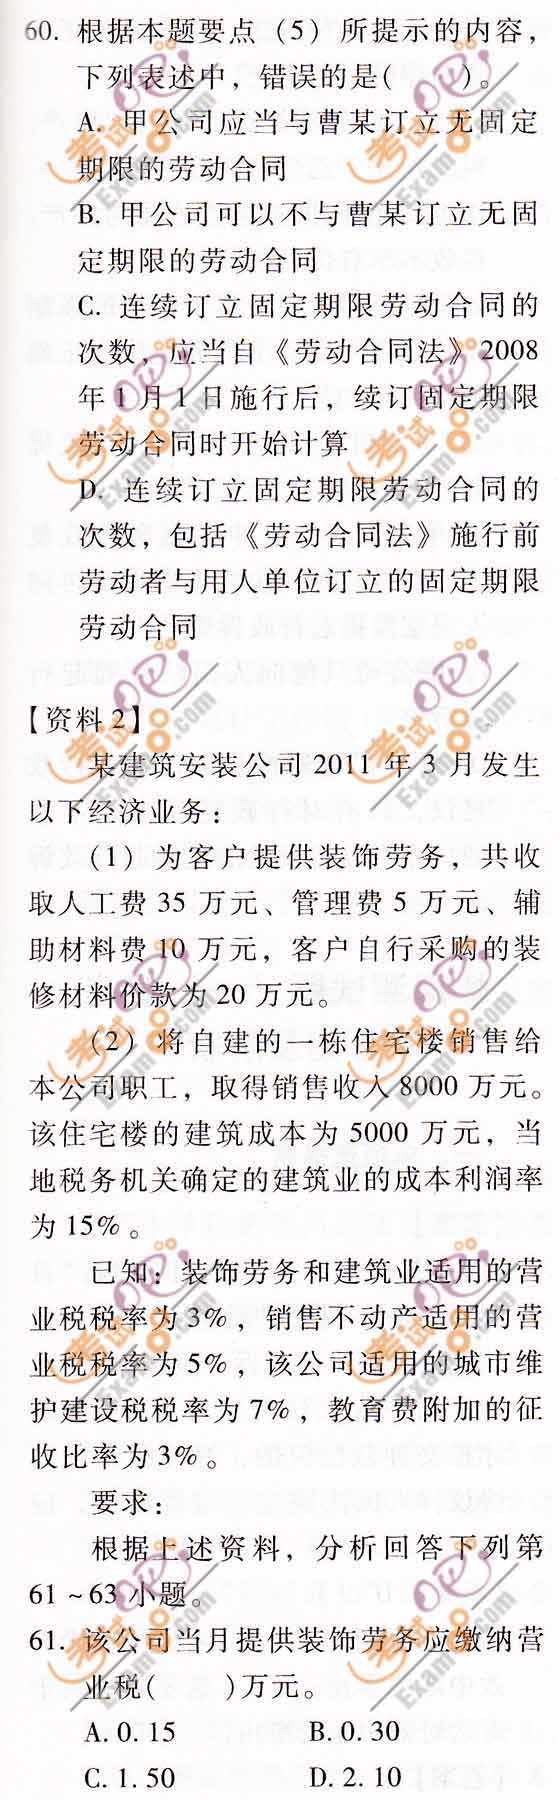 60. 根据本题要点（5）所提示的内容，
下列表述中，错误的是(　　)。
A. 甲公司应当与曹某订立无固定
期限的劳动合同
B. 甲公司可以不与曹某订立无固
定期限的劳动合同
C. 连续订立固定期限劳动合同的
次数，应当自《劳动合同法》2008
年1月1日施行后，续订固定期限
劳动合同时开始计算
D. 连续订立固定期限劳动合同的
次数，包括《劳动合同法》施行前
劳动者与用人单位订立的固定期限
劳动合同
【资料2】
某建筑安装公司2011年3月发生
以下经济业务：
（1）为客户提供装饰劳务，共收
取人工费35万元、管理费5万元、辅
助材料费10万元，客户自行采购的装
修材料价款为20万元。
（2）将自建的一栋住宅楼销售给
本公司职工，取得销售收入8000万元。
该住宅楼的建筑成本为5000万元，当
地税务机关确定的建筑业的成本利润率
为15%。
已知：装饰劳务和建筑业适用的营
业税税率为3%，销售不动产适用的营
业税税率为5%，该公司适用的城市维
护建设税税率为7%，教育费附加的征
收比率为3%。
要求：
根据上述资料，分析回答下列第
61～63小题。
61. 该公司当月提供装饰劳务应缴纳营
业税(　　)万元。
A. 0.15　B. 0.30
C. 1.50　D. 2.10
考试
Exam8.com